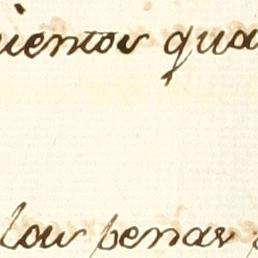 uientos qua
los penas